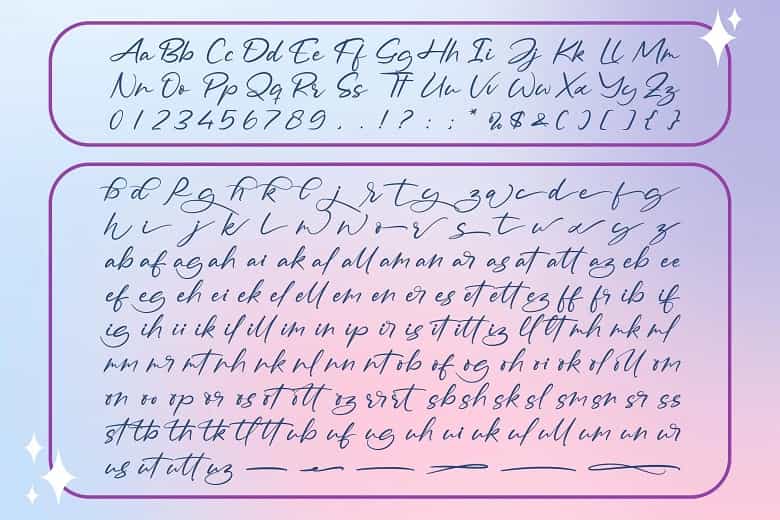 Aa Bb Cc Dd Ee Ff Gg Hh Ii Jj Kk Ll Mm
Nn Oo Pp Qq Rr Ss Tt Uu Vv Ww Xx Yy Zz
0 1 2 3 4 5 6 7 8 9 . . ! ? : ; * % $ & ( ) [ ] { }
b d f g h k l j r t y z a c d e f g
h i j k l m n o r s t u x y z
ab af ag ah ai ak al all am an ar as at att az eb ee
ef eg eh ei ek el ell em en er es et ett ez ff fr ib if
ig ih ii ik il ill im in ip ir is it itt iz ll lt mh mk ml
mm mr mt nh nk nl nn nt ob of og oh oi ok ol oll om
on oo op or os ot ott oz rr rt sb sh sk sl sm sn sr ss
st tb th tk tl tt ub uf ug uh ui uk ul ull um un ur
us ut utt uz